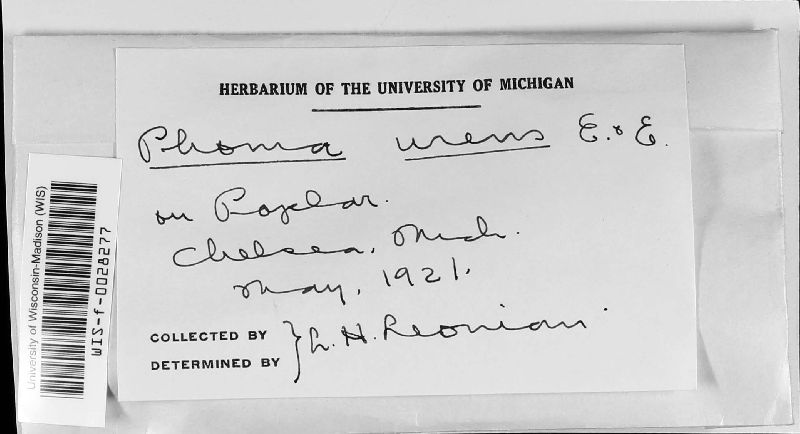 HERBARIUM OF THE UNIVERSITY OF MICHIGAN
Phoma urens E. & E.
on Poplar.
Chelsea, Mich.
May, 1921.
COLLECTED BY
DETERMINED BY } L. H. Leonian
University of Wisconsin-Madison (WIS)
WIS-f-0028277